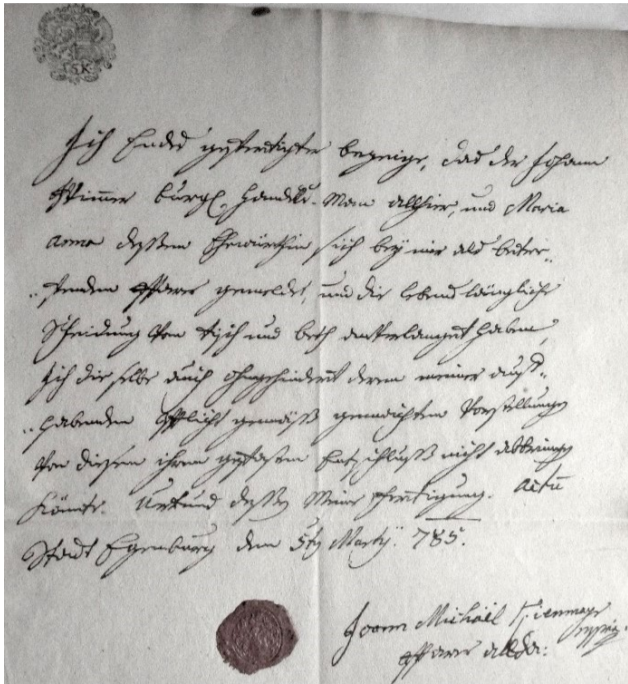 15K
Ich Endes gefertigter bezeige, das der Johann
burgl. Handels-Man allhier, und Maria
Anna dessen Ehewürthin sich bey mir als
Pfarrer gemeldet, und die lebenslängliche
Scheidung von Tisch und beth anverlanget haben,
Ich die selbe auch ohngehindert deren meiner auff-
habenden Pflicht gemäß gemachten Vorstellungen
von diesem ihrem gefasten Entschluß nicht abbringen
könnte. Urkund dessen meine Fertigung. Actu
Stadt Egenburg den 5ten Martÿ. 785.
Joann Michäel Kienmayr
Pfarrer allda: